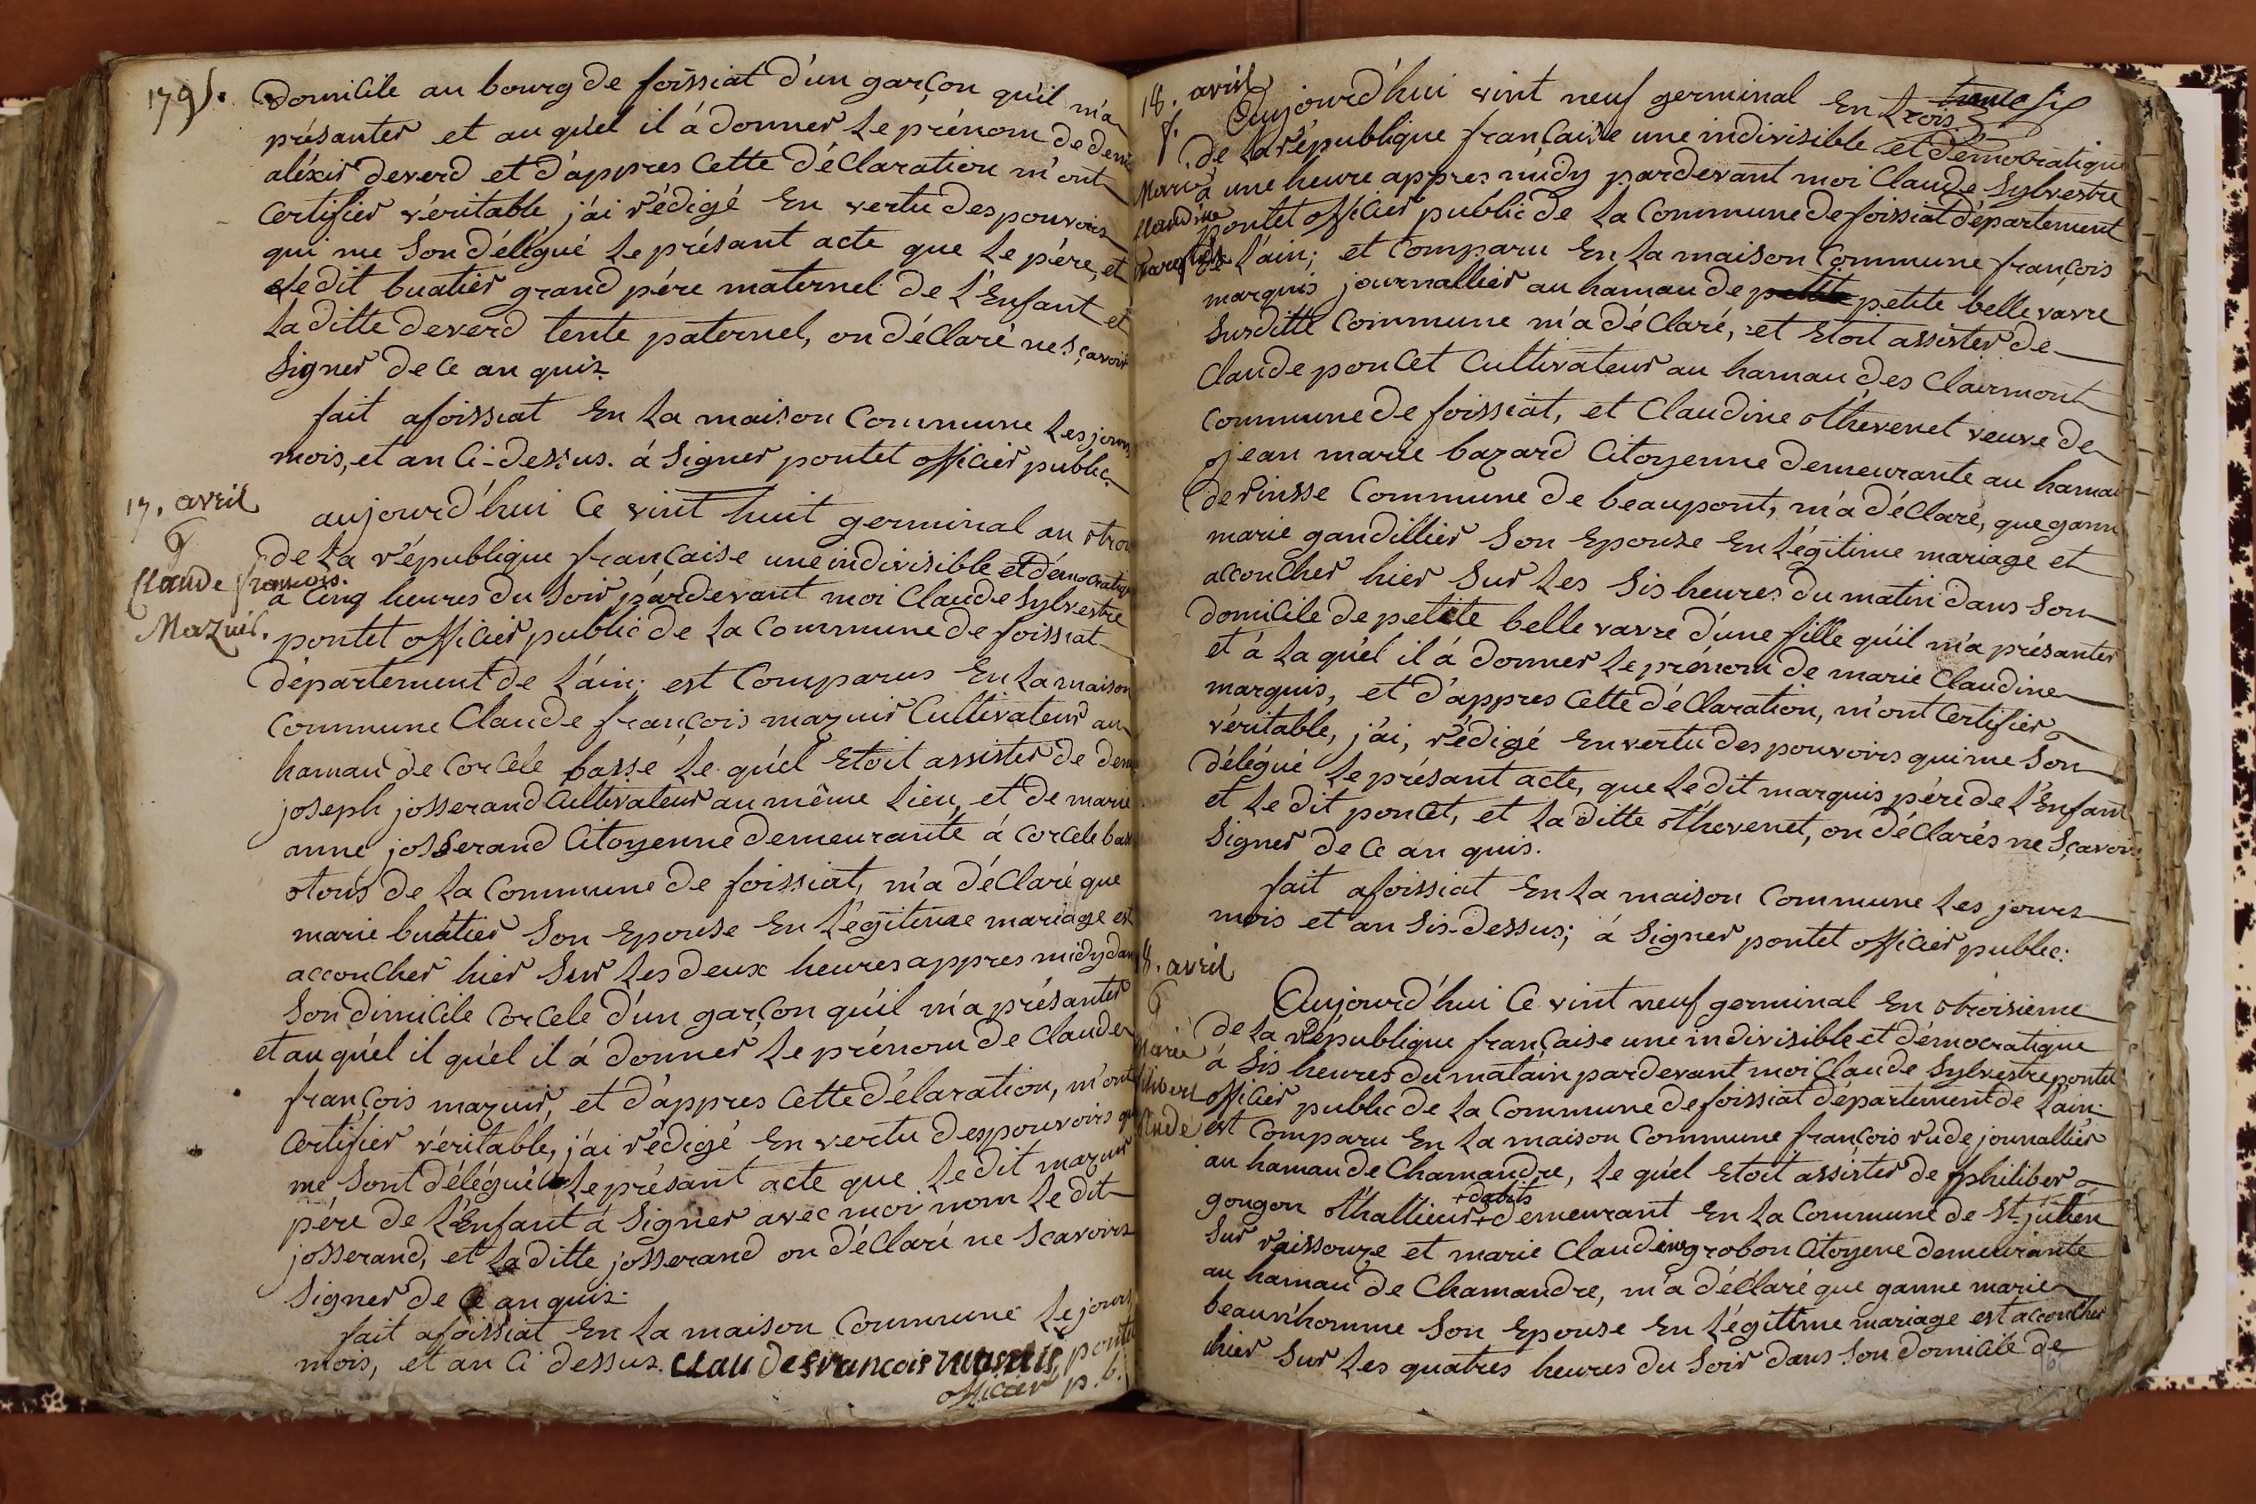 1795.
Domicile au bourg de foissiat d'un garçon qu'il m'a
présanter et au quél il á donner le prénom de deni
aléxis deverd et d'appres Cette déClaration m'ont
Certifier véritable j'ai rédigé En vertu des pouvoirs
qui me Son délégué Le présant acte que Le pére, et
Le dit buatier grand pére maternel de L'Enfant et
La ditte deverd tente paternel, on déClaré ne Sçavoir
Signer de Ce an quis
fait afoissiat En La maison Commune Les jours
mois, et an Ci-dessus. á Signer pontet officier public.
17. avril
G
Claude françois
Mazuir.
aujourd'hui Ce vint huit germinal an trois
de La république française une indivisible et démocratique
a Cinq heures du Soir pardevant moi Claude Sylvestre
pontet officier public de La Commune de foissiat
département de L'ain; est Comparus En La maison
Commune Claude françois mazuir Cultivateur au
hamau de Corcelé basse Le quél Etoit assister de deni
joseph josserand Cultivateur au même Lieu, et de marie
anne josserand Citoyenne demeurante á Corcele bas
tous de La Commune de foissiat, m'a déClaré que
marie buatier Son Epouse En Légitimae mariage est
accouCher hier Sur Les deux heures appres midy dans
Son dimiCile Corcele d'un garçon qu'il m'a présanter
et au quél il quél il á donner Le prénom de Claude
françois mazuir, et d'appres Cette délaration, m'ont
Certifier véritable, j'ai rédigé En vertu des pouvoirs qui
me Sont délégué Le présant acte que Le dit mazuir
pére de L'Enfant á Signer avec moi nom Le dit
josserand, et La ditte josserand on déClaré ne Scavoirs
Signer de Ce an quis
fait afoissiat En La maison Commune Le jours
mois, et an Ci dessus. Claude francois mazuir, pontet
officier p.b.
trente six
18. avril
f.
Marie
Claudine
Marquis
Aujourd'hui vint neuf germinal En trois
de La république française une indivisible et démocratique
a une heure appres midy pardevant moi Claude Sylvestre
pontet officier public de La Commune de foissiat département
de L'ain; et Comparu En La maison Commune françois
marquis journallier au hamau de petite petite belle vavre
Surditte Commune m'a déClaré, et Etoit assister de
Claude poncet Cultivateur au hamau des Clairmont
Commune de foissiat, et Claudine thevenet veuve de
jean marie bazard Citoyenne demeurante au hamau
de Pinsse Commune de beaupont, m'a déClaré, que ganne
marie gandillier Son Epouse En Légitime mariage et
accouCher hier Sur Les Sis heures du matin dans Son
domicile de petite belle vavre d'une fille qu'il m'a présanter
et á La quél il á donner Le prénom de marie Claudine
marquis, et d'appres Cette déClaration, m'ont Certifier
véritable, j'ai, rédigé En vertu des pouvoirs qui me Son
délégué Le présant acte, que Le dit marquis pére de L'Enfant
et Le dit poncet, et La ditte thevenet, on déClarés ne Sçavoir
Signer de Ce an quis.
fait afoissiat En La maison Commune Les jours
mois et an Sis-dessus; á Signer pontet officier public:
18. avril
G
Marie
philibert
Rude
Aujourd'hui Ce vint neuf germinal En troisieme
de La République française une indivisible et démocratique
á Sis heures du matain pardevant moi Claude Sylvestre pontet
officier public de La Commune de foissiat département de L'ain:
est Comparu En La maison Commune françois rude journallier
au hamau de Chamandre, Le quél Etoit assister de philiber
+ dabits
gougon thallieur + demeurant En La Commune de St julien
Sur raissouze et marie Claudine grobon Citoyene demeurante
au hamau de Chamandre, m'a déClaré que ganne marie
beaun'homme Son Epouse En Légitime mariage est accoucher
hier Sur Les quatres heures du Soir dans Son domicile de